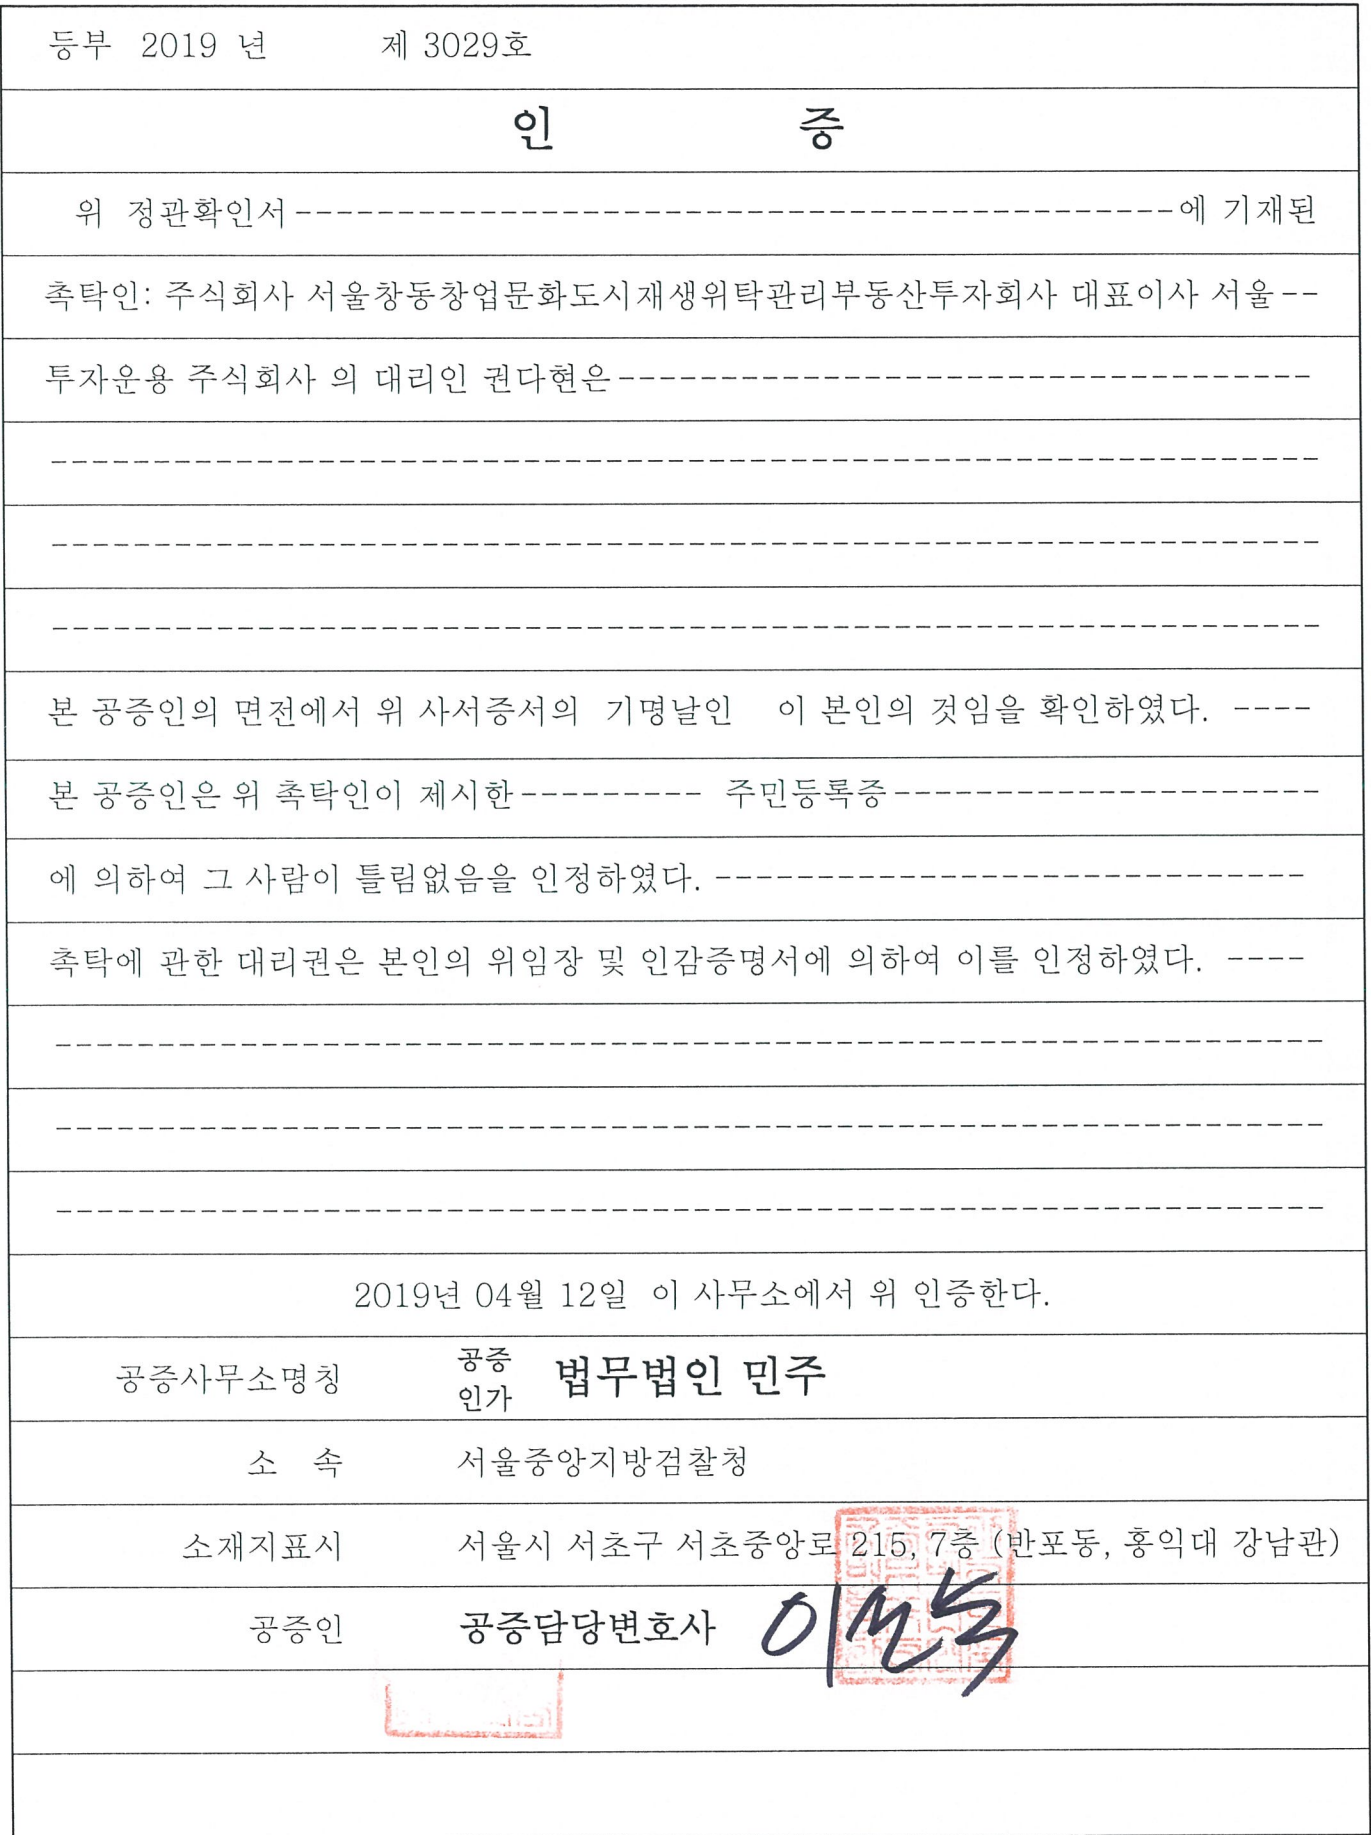 등부 2019 년 제 3029호
인 증
위 정관확인서-------------------------------------------에 기재된
촉탁인: 주식회사 서울창동창업문화도시재생위탁관리부동산투자회사 대표이사 서울--
투자운용 주식회사 의 대리인 권다현은----------------------------------
--------------------------------------------------------------
--------------------------------------------------------------
--------------------------------------------------------------
본 공증인의 면전에서 위 사서증서의 기명날인 이 본인의 것임을 확인하였다. ----
본 공증인은 위 촉탁인이 제시한--------- 주민등록증---------------------
에 의하여 그 사람이 틀림없음을 인정하였다. -----------------------------
촉탁에 관한 대리권은 본인의 위임장 및 인감증명서에 의하여 이를 인정하였다. ----
--------------------------------------------------------------
--------------------------------------------------------------
--------------------------------------------------------------
2019년 04월 12일 이 사무소에서 위 인증한다.
공증사무소명칭 공증인가 법무법인 민주
소 속 서울중앙지방검찰청
소재지표시 서울시 서초구 서초중앙로 215, 7층 (반포동, 홍익대 강남관)
공증인 공증담당변호사